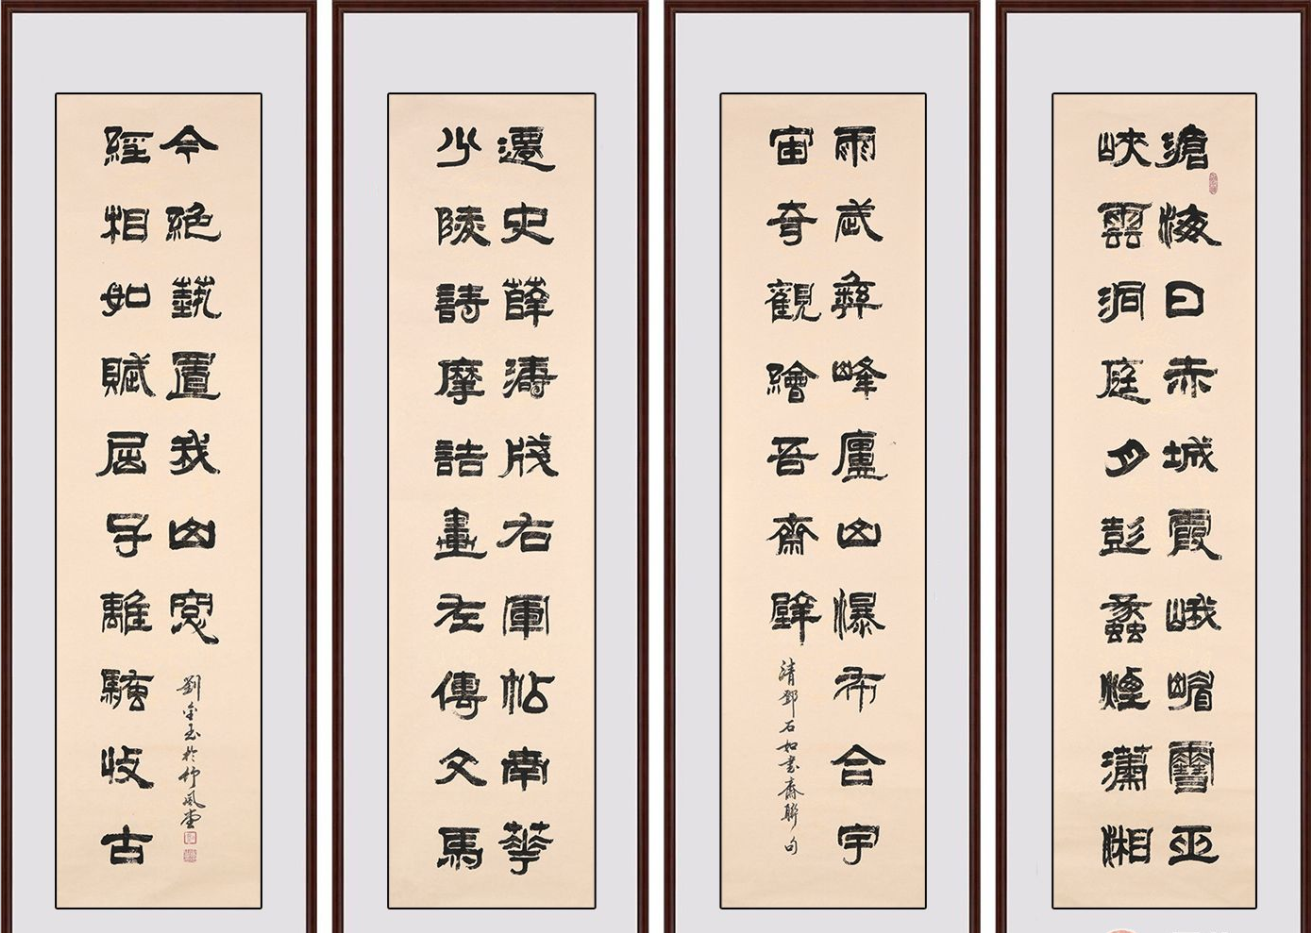 滄海日赤城霞峨嵋雪巫
峽雲洞庭月彭蠡煙瀟湘
雨武彝峰廬山瀑布合宇
宙奇觀繪吾齋壁
清鄧石如書齋聯句
少陵詩摩詰畫左傳文馬
遷史薛濤牋右軍帖南華
經相如賦屈子離騷收古
今絕藝置我山窗
劉金玉於竹風堂